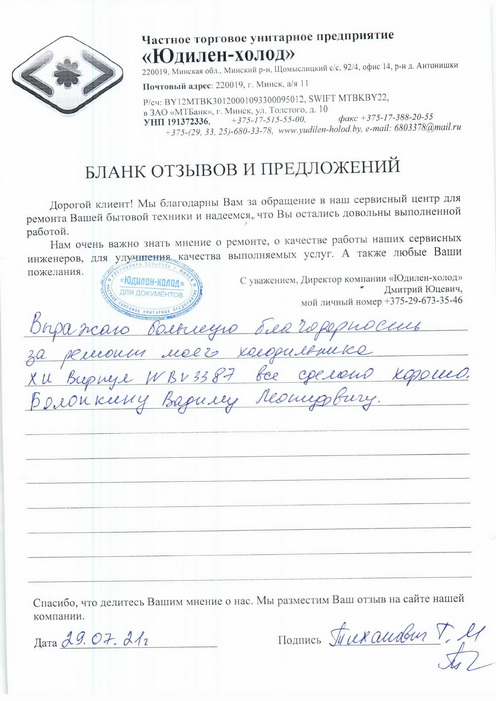 Частное торговое унитарное предприятие
«Юдилен-холод»
220019, Минская обл., Минский р-н, Щомыслицкий с/с, 92/4, офис 14, р-н д. Антонишки
Почтовый адрес: 220019, г. Минск, а/я 11
Р/сч: BY12MTBK30120001093300095012, SWIFT MTBKBY22,
в ЗАО «МТБанк», г. Минск, ул. Толстого, д. 10
УНП 191372336, +375-17-515-55-00, факс +375-17-388-20-55
+375-(29, 33, 25)-680-33-78, www.yudilen-holod.by, e-mail: 6803378@mail.ru
БЛАНК ОТЗЫВОВ И ПРЕДЛОЖЕНИЙ
Дорогой клиент! Мы благодарны Вам за обращение в наш сервисный центр для
ремонта Вашей бытовой техники и надеемся, что Вы остались довольны выполненной
работой.
Нам очень важно знать мнение о ремонте, о качестве работы наших сервисных
инженеров, для улучшения качества выполняемых услуг. А также любые Ваши
пожелания.
«ЮДИЛЕН-ХОЛОД»
ДЛЯ ДОКУМЕНТОВ
С уважением, Директор компании «Юдилен-холод»
Дмитрий Юцевич,
мой личный номер +375-29-673-35-46
Выражаю большую благодарность
за ремонт моего холодильника
WBV3387 все сделано хорошо.
Болопкину Вадиму Леонидовичу.
Спасибо, что делитесь Вашим мнение о нас. Мы разместим Ваш отзыв на сайте нашей
компании.
Дата 29.07.21г Подпись Тиханович Т. М